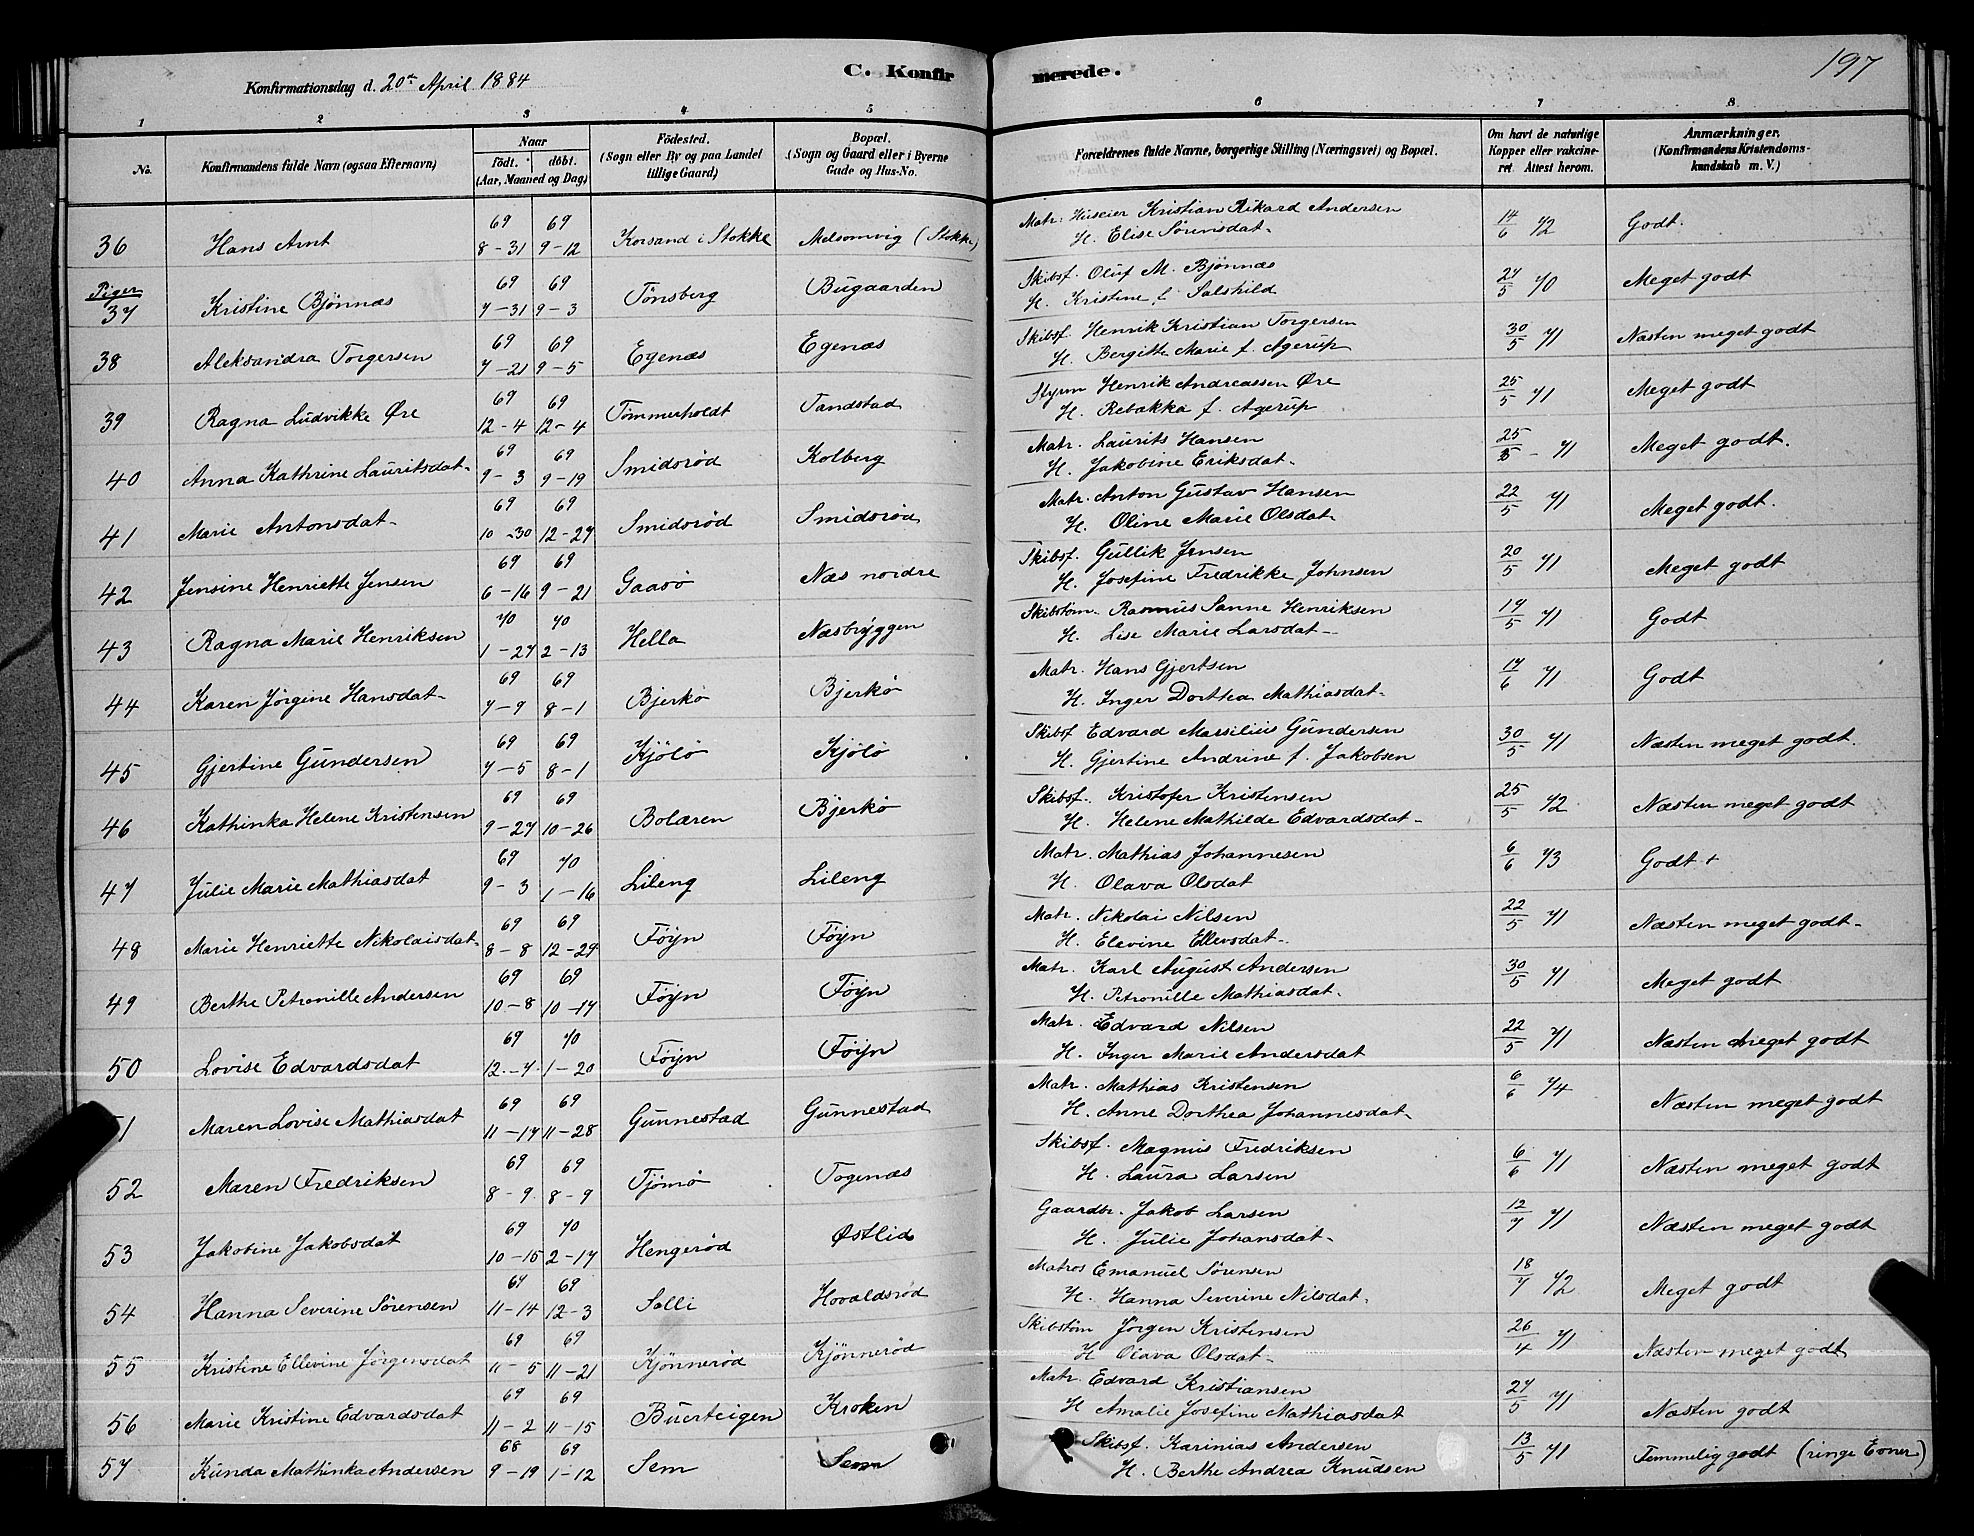 197
C. Konfirmerede.
Konfirmationsdag d. 20de April 1884
1 2 3 4 5 6 7 8
No. | Konfirmandens fulde Navn (ogsaa Efternavn) | Naar födt. döbt. (Aar, Maaned og Dag) | Födested. (Sogn eller By og paa Landet tillige Gaard) | Bopæl. (Sogn og Gaard eller i Byerne Gade og Hus-No. | Forældrenes fulde Navne, borgerlige Stilling (Næringsvei) og Bopæl. | Om havt de naturlige Kopper eller vakcineret. Attest herom. | Anmærkninger. (Konfirmandens Kristendomskundskab m. V.)
36 Hans Arnt 69 8-31 69 9-12 Korsand i Stokke Melsomvig (Stokke) Matr. Huseier Kristian Rikard Andersen
H. Elise Sörensdat. 14/6 72 Godt.
Piger
37 Kristine Bjönnæs 69 7-31 69 9-3 Tönsberg Bugaarden Skibsf. Oluf M. Bjönnæs
H. Kristine f. Salshild 27/5 70 Meget godt
38 Aleksandra Torgersen 69 7-21 69 9-5 Egenæs Egenæs Skibsf. Henrik Kristian Torgersen
H. Bergitte Marie f. Agerup 30/5 71 Næsten meget godt
39 Ragna Ludvikke Øre 69 12-4 69 12-4 Tömmerholdt Tandstad Styrm Henrik Andreassen Øre
H. Rebakka f. Agerup 25/5 71 Meget godt
40 Anna Kathrine Lauritsdat. 69 9-3 69 9-19 Smidsröd Kolberg Matr. Laurits Hansen
H. Jakobine Eriksdat. 25/5 - 71 Meget godt.
41 Marie Antonsdat. 69 10-30 69 12-27 Smidsröd Smidsröd Matr. Anton Gustav Hansen
H. Oline Marie Olsdat. 22/5 71 Meget godt.
42 Jensine Henriette Jensen 69 6-16 69 9-21 Gaasö Næs nordre Skibsf. Gullik Jensen
H. Josefine Fredrikke Johnsen 20/5 71 Meget godt
43 Ragna Marie Henriksen 70 1-27 70 2-13 Hella Næsbryggen Skibstöm. Rasmus Sanne Henriksen
H. Lise Marie Larsdat. 17/5 71 Godt
44 Karen Jörgine Hansdat. 69 7-9 69 8-1 Bjerkö Bjerkö Matr. Hans Gjertsen
H. Inger Dorthea Mathiasdat. 17/6 71 Godt
45 Gjertine Gundersen 69 7-5 69 8-1 Kjölö Kjölö Skibsf Edvard Marsilius Gundersen
H. Gjertine Andrine f. Jakobsen 30/5 71 Næsten meget godt.
46 Kathinka Helene Kristensen 69 9-27 69 10-26 Bolæren Bjerkö Skibsf. Kristofer Kristensen
H. Helene Mathilde Edvardsdat. 25/5 72 Næsten meget godt
47 Julie Marie Mathiasdat 69 9-3 70 1-16 Lileng Lileng Matr. Mathias Johannesen
H. Olava Olsdat 6/6 73 Godt +
48 Marie Henriette Nikolaisdat. 69 8-8 69 12-27 Föyn Föyn Matr. Nikolai Nilsen
H. Elevine Ellevsdat. 22/5 71 Næsten meget godt.
49 Berthe Petronille Andersen 69 10-8 69 10-17 Föyn Föyn Matr. Karl August Andersen
H. Petronille Mathiasdat. 30/5 71 Meget godt
50 Lovise Edvardsdat 69 12-7 70 1-20 Föyn Föyn Matr. Edvard Nilsen
H. Inger Marie Andersdat 22/5 71 Næsten meget godt
1 Maren Lovise Mathiasdat 69 11-17 69 11-28 Gunnestad Gunnestad Matr. Mathias Kristensen
H. Anne Dorthea Johannesdat. 6/6 74 Næsten meget godt
52 Maren Fredriksen 69 8-9 69 8-9 Tjömö Togenæs Skibsf. Magnus Fredriksen
H. Laura Larsen 6/6 71 Næsten meget godt
53 Jakobine Jakobsdat 69 10-15 70 2-17 Hengeröd Østlid Gaardbr. Jakob Larsen
H. Julie Johansdat. 12/7 71 Næsten meget godt
54 Hanna Severine Sörensen 69 11-14 69 12-3 Solli Hovaldsröd Matros Emanuel Sörensen
H. Hanna Severine Nilsdat. 18/7 72 Meget godt
55 Kristine Ellevine Jörgensdat 69 11-5 69 11-21 Kjönneröd Kjönneröd Skibstöm Jörgen Kristensen
H Olava Olsdat. 26/4 71 Næsten meget godt
56 Marie Kristine Edvardsdat 69 11-2 69 11-15 Buerteigen Kroken Matr. Edvard Kristiansen
H Amalie Josefine Mathiasdat 27/5 71 Næsten godt
57 Kunda Mathinka Andersen 68 9-19 69 1-12 Sem Sem Skibsf. Karinias Andersen
H. Berthe Andrea Knudsen 13/5 71 Temmelig godt (ringe Evner)